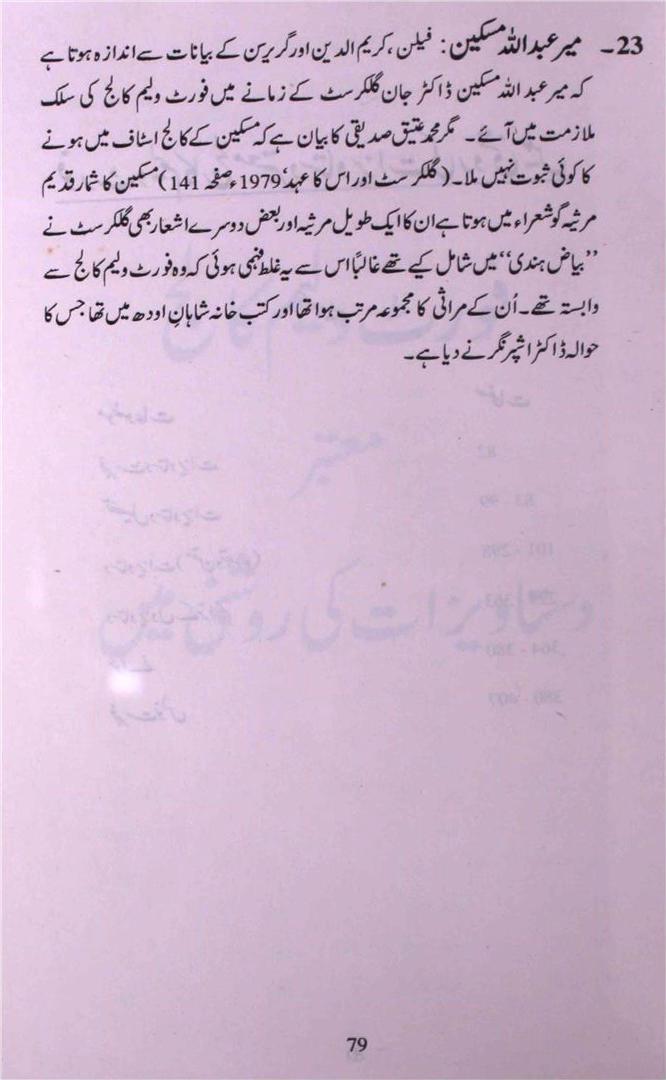 23۔ میر عبداللہ مسکین: فیلن، کریم الدین اور گریرسن کے بیانات سے اندازہ ہوتا ہے
کہ میر عبداللہ مسکین ڈاکٹر جان گلکرسٹ کے زمانے میں فورٹ ولیم کالج کی سلک
ملازمت میں آئے۔ مگر محمد عتیق صدیقی کا بیان ہے کہ مسکین کے کالج اسٹاف میں ہونے
کا کوئی ثبوت نہیں ملا۔ (گلکرسٹ اور اس کا عہد، 1979ء صفحہ 141) مسکین کا شمار قدیم
مرثیہ گو شعراء میں ہوتا ہے ان کا ایک طویل مرثیہ اور بعض دوسرے اشعار بھی گلکرسٹ نے
’’بیاض ہندی‘‘ میں شامل کیے تھے غالباً اس سے یہ غلط فہمی ہوئی کہ وہ فورٹ ولیم کالج سے
وابستہ تھے۔ اُن کے مراثی کا مجموعہ مرتب ہوا تھا اور کتب خانہ شاہانِ اودھ میں تھا جس کا
حوالہ ڈاکٹر اشپرنگر نے دیا ہے۔
79